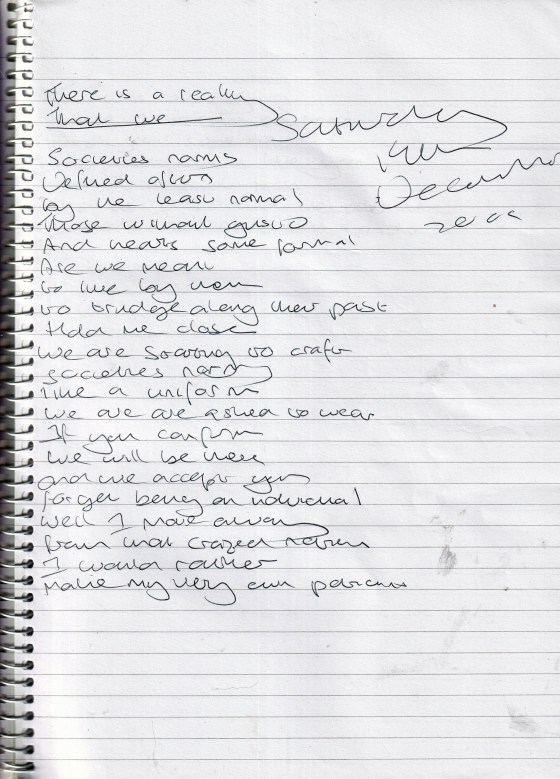 there is a really
that we
Saturday
Societies norms
Defined often
by the least normal
Those without gusto
And hearts some formal
Are we meant
to live by them
to trudge along their past
Hold me close
we are to craft
societies norms
like a uniform
we are are asked to wear
If you conform
we will be here
and we accept you
forget being an individual
Well I move away
from that crazed notion
I would rather
Make my very own